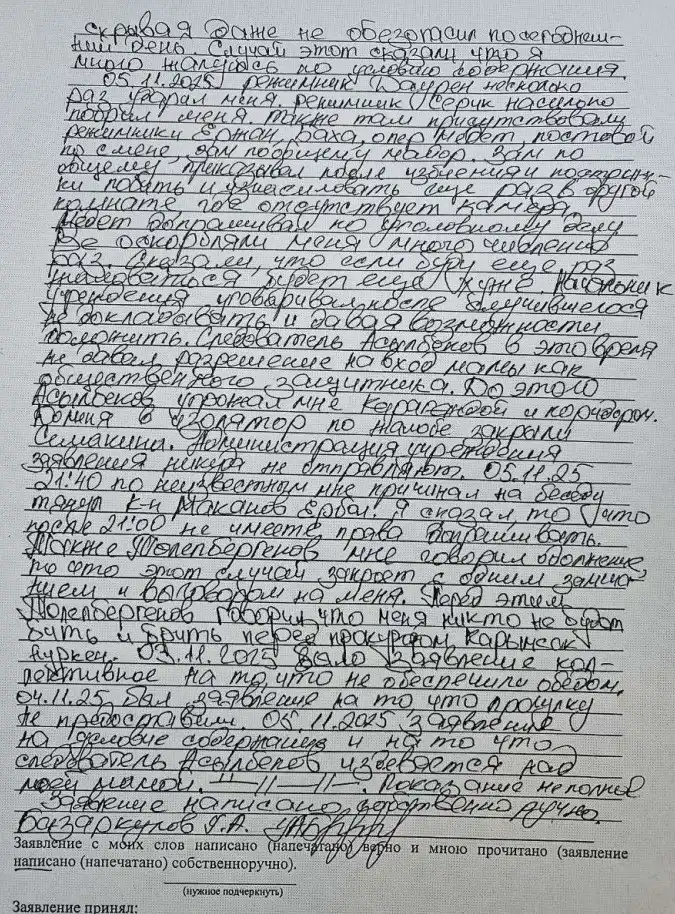 скрывая даже не обезопасил по сегодняш-
ний день. Случай этот сказали что я
много жалуюсь по условию содержания.
05.11.2025 режимник Даурен несколько
раз ударил меня. режимник Серик насильно
побрил меня. также там присутствовали
режимники Ержан, Баха, опер Медет, постовой
по смене, зам по общему майор. Зам по
общему приказывал после избиения и подстриж-
ки побить и изнасиловать еще раз в другой
комнате где отсутствует камера.
Медет допрашивал по уголовному делу
Все оскорбляли меня многочисленно
раз. Сказали, что если буду еще раз
жаловаться будет еще хуже. Начальник
учреждения уговаривал после случившегося
не докладывать и давая возможности
положить. Следователь Асылбеков в это время
не давал разрешение на вход мамы как
общественного защитника. До этого
Асылбеков угрожал мне Карагандой и коридором.
До меня в изолятор по жалобе закрыли
Семакина. Администрация учреждения
заявления никуда не отправляют. 05.11.25
21:40 по неизвестным мне причинам на беседу
тянул к-н Маканов Ербол. Я сказал то что
после 21:00 не имеете права допрашивать.
Также Толепбергенов мне говорил
то что этот случай закроет с одним замеча-
нием и выговором на меня. Перед этим
Толепбергенов говорил что меня никто не будет
бить и брить перед прокурором Карымсак
Нуркен. 03.11.2025 было заявление кол-
лективное на то что не обеспечили обедом.
04.11.25 был заявление на то что прогулку
не предоставили. 05.11.2025 заявление
на условие содержания и на то что
следователь Асылбеков издевается над
моей мамой. —//—//—//—. Показание неполное
Заявление написано собственно ручно.
Базаркулов Г.А.
Заявление с моих слов написано (напечатано) верно и мною прочитано (заявление
написано (напечатано) собственноручно).
(нужное подчеркнуть)
Заявление принял: